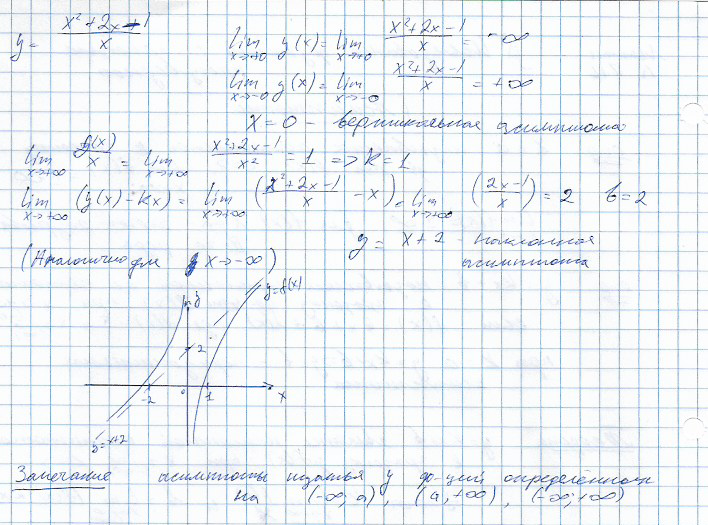 y = (x²+2x-1)/x
lim x→+0 y(x) = lim x→+0 (x²+2x-1)/x = -∞
lim x→-0 y(x) = lim x→-0 (x²+2x-1)/x = +∞
x=0 - вертикальная асимптота
lim x→+∞ y(x)/x = lim x→+∞ (x²+2x-1)/x² = 1 => k=1
lim x→+∞ (y(x)-kx) = lim x→+∞ ((x²+2x-1)/x - x) = lim x→+∞ ((2x-1)/x) = 2 b=2
y = x+2 - наклонная
асимптота
(Аналогично для x→-∞)
y
y=f(x)
2
-2 0 1 x
y=x+2
Замечание асимптоты у ф-ций определённых
на (-∞; a), (a, +∞), (-∞; +∞)